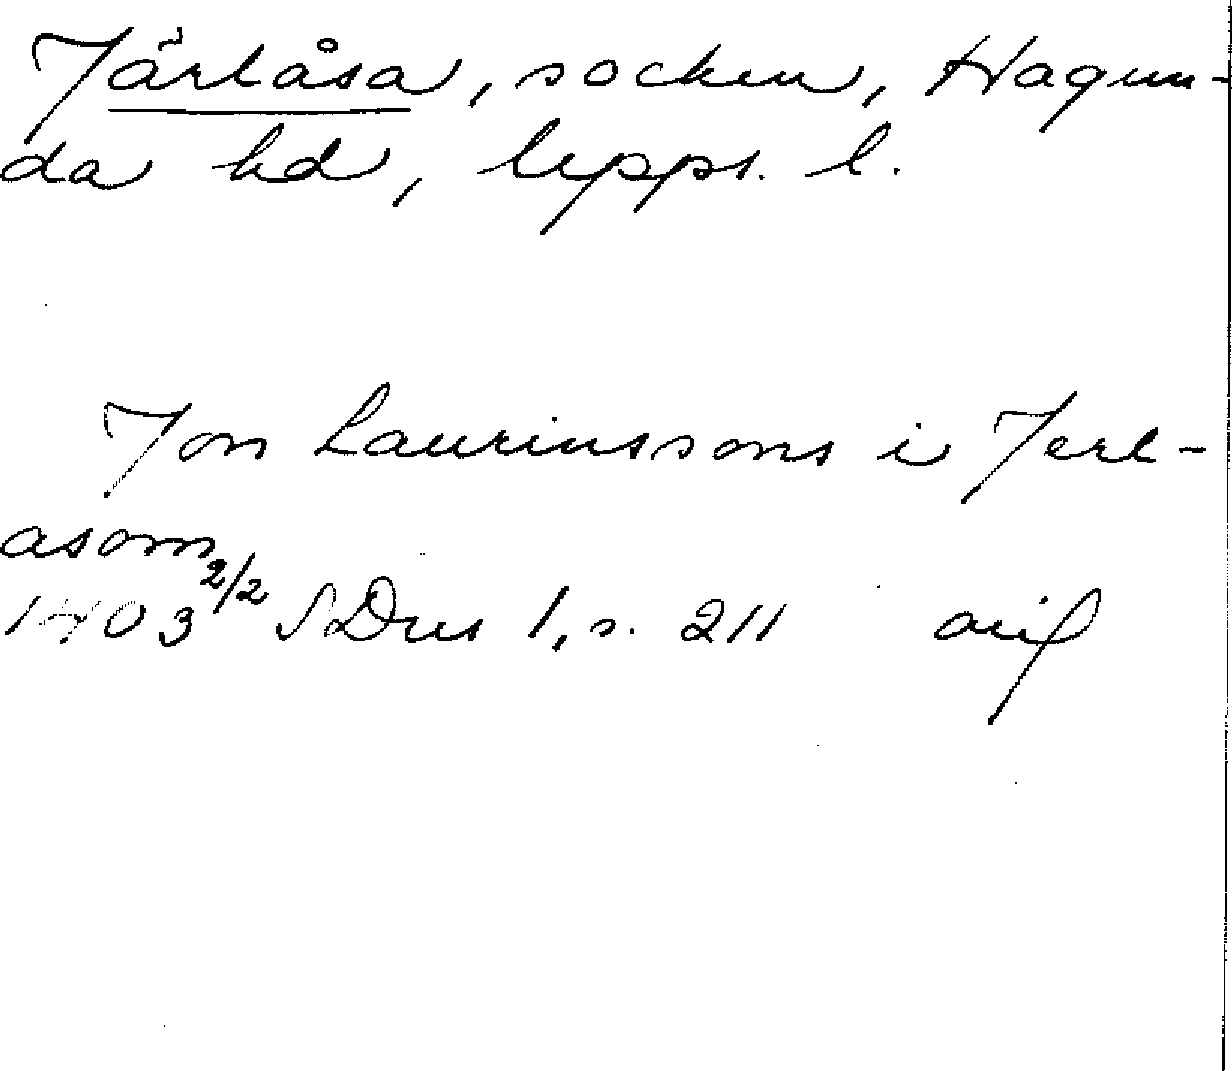 Järlåsa, socken, Hagun-
da hd, Upps. l.
Jon Laurinssons i Jerl-
asom
1403 2/2 SDns 1, s. 211 avs